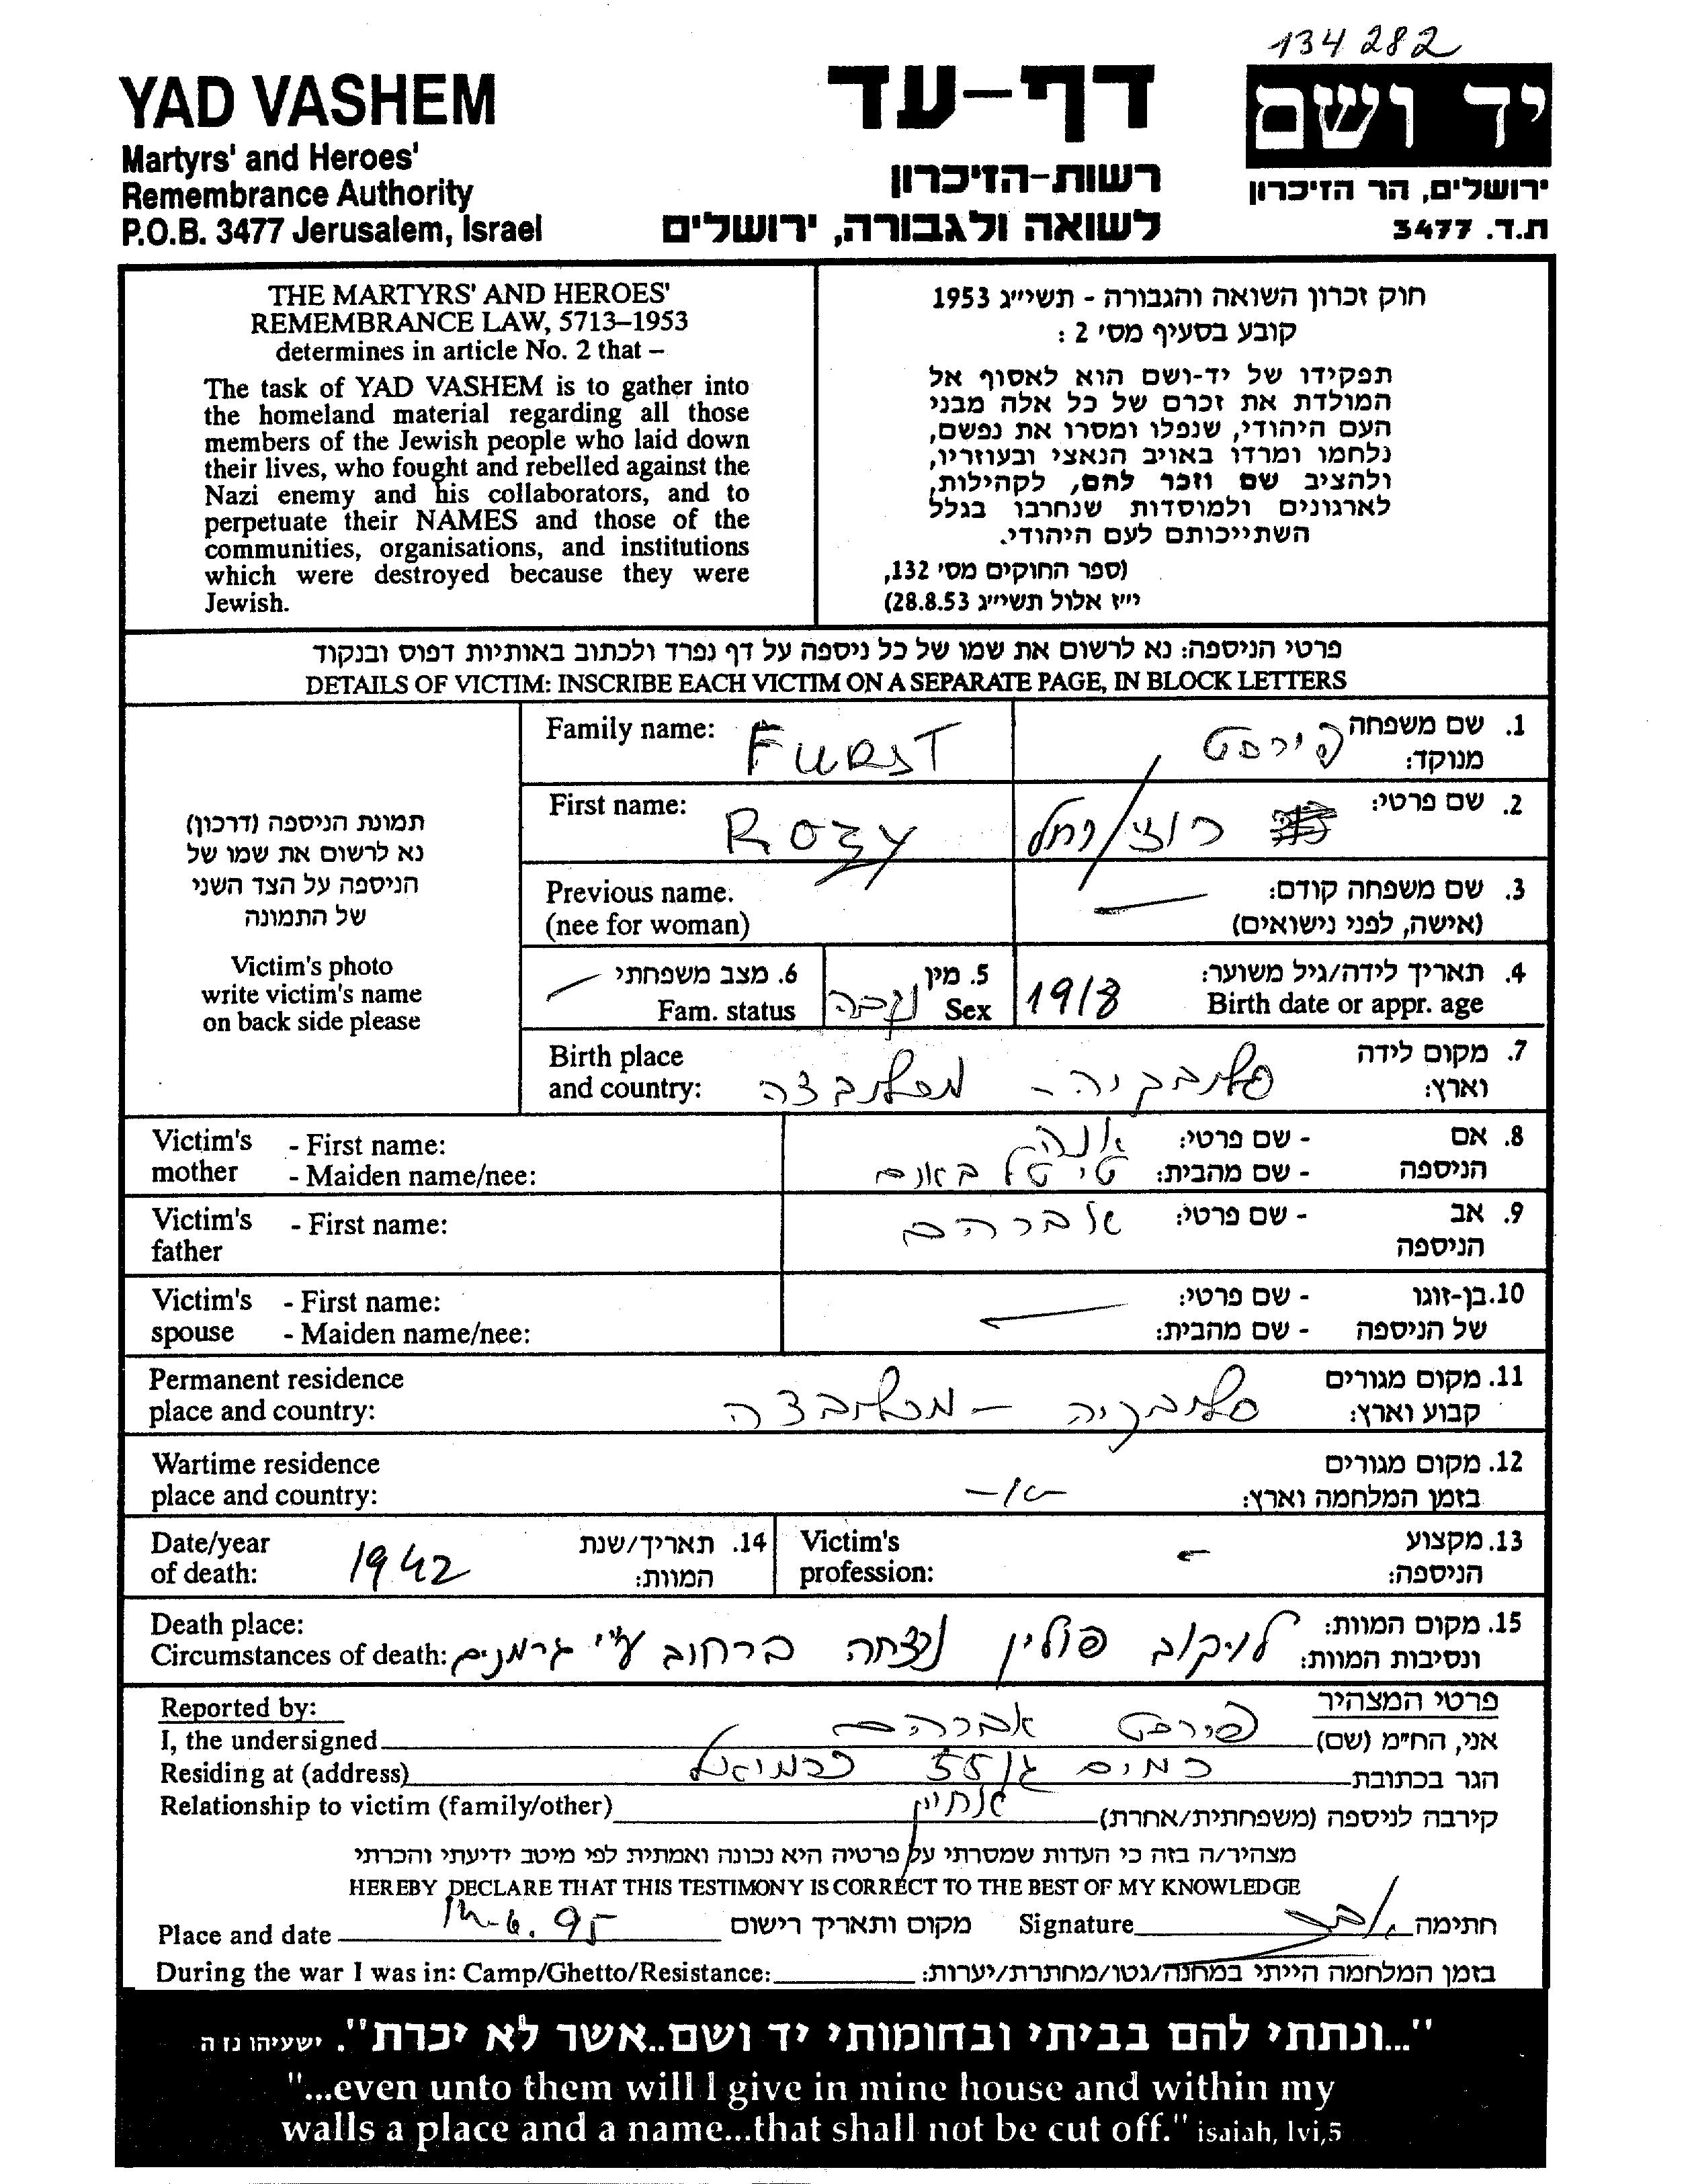 134282
YAD VASHEM
Martyrs' and Heroes'
Remembrance Authority
P.O.B. 3477 Jerusalem, Israel
דף-עד
רשות-הזיכרון
לשואה ולגבורה, ירושלים
יד ושם
ירושלים, הר הזיכרון
ת.ד. 3477
THE MARTYRS' AND HEROES'
REMEMBRANCE LAW, 5713–1953
determines in article No. 2 that –
The task of YAD VASHEM is to gather into
the homeland material regarding all those
members of the Jewish people who laid down
their lives, who fought and rebelled against the
Nazi enemy and his collaborators, and to
perpetuate their NAMES and those of the
communities, organisations, and institutions
which were destroyed because they were
Jewish.
חוק זכרון השואה והגבורה - תשי״ג 1953
קובע בסעיף מס' 2 :
תפקידו של יד-ושם הוא לאסוף אל
המולדת את זכרם של כל אלה מבני
העם היהודי, שנפלו ומסרו את נפשם,
נלחמו ומרדו באויב הנאצי ובעוזריו,
ולהציב שם וזכר להם, לקהילות,
לארגונים ולמוסדות שנחרבו בגלל
השתייכותם לעם היהודי.
(ספר החוקים מס' 132,
י״ז אלול תשי״ג 28.8.53)
פרטי הניספה: נא לרשום את שמו של כל ניספה על דף נפרד ולכתוב באותיות דפוס ובנקוד
DETAILS OF VICTIM: INSCRIBE EACH VICTIM ON A SEPARATE PAGE, IN BLOCK LETTERS
תמונת הניספה (דרכון)
נא לרשום את שמו של
הניספה על הצד השני
של התמונה
Victim's photo
write victim's name
on back side please
Family name: FURST
1. שם משפחה מנוקד: פירסט
First name: ROZY
2. שם פרטי: רוצי/רחל
Previous name.
(nee for woman)
3. שם משפחה קודם: –
(אישה, לפני נישואים)
4. תאריך לידה/גיל משוער: 1918
Birth date or appr. age
5. מין נקבה
Sex
6. מצב משפחתי –
Fam. status
Birth place
and country:
7. מקום לידה
וארץ: סלובקיה - מכלובצה
Victim's mother - First name:
- Maiden name/nee:
8. אם הניספה - שם פרטי: אנה
- שם מהבית: טיטלבאום
Victim's father - First name:
9. אב הניספה - שם פרטי: אברהם
Victim's spouse - First name:
- Maiden name/nee:
10. בן-זוגו של הניספה - שם פרטי: –
- שם מהבית:
Permanent residence
place and country:
11. מקום מגורים
קבוע וארץ: סלובקיה - מכלובצה
Wartime residence
place and country:
12. מקום מגורים
בזמן המלחמה וארץ:
Victim's
profession:
13. מקצוע
הניספה: -
Date/year
of death: 1942
14. תאריך/שנת
המוות:
Death place:
Circumstances of death:
15. מקום המוות:
ונסיבות המוות: לויקוב פולין נצחה ברחוב ע״י גרמנים
Reported by:
פרטי המצהיר
I, the undersigned
אני, הח״מ (שם) פירסט אברהם
Residing at (address)
הגר בכתובת רמים 55/ג כרמיאל
Relationship to victim (family/other)
קירבה לניספה (משפחתית/אחרת) אחיין
מצהיר/ה בזה כי העדות שמסרתי על פרטיה היא נכונה ואמתית לפי מיטב ידיעתי והכרתי
HEREBY DECLARE THAT THIS TESTIMONY IS CORRECT TO THE BEST OF MY KNOWLEDGE
Place and date מקום ותאריך רישום
Signature חתימה
During the war I was in: Camp/Ghetto/Resistance: בזמן המלחמה הייתי במחנה/גטו/מחתרת/יערות:
"...ונתתי להם בביתי ובחומותי יד ושם..אשר לא יכרת". ישעיהו נו ה
"...even unto them will I give in mine house and within my
walls a place and a name...that shall not be cut off." isaiah, lvi,5